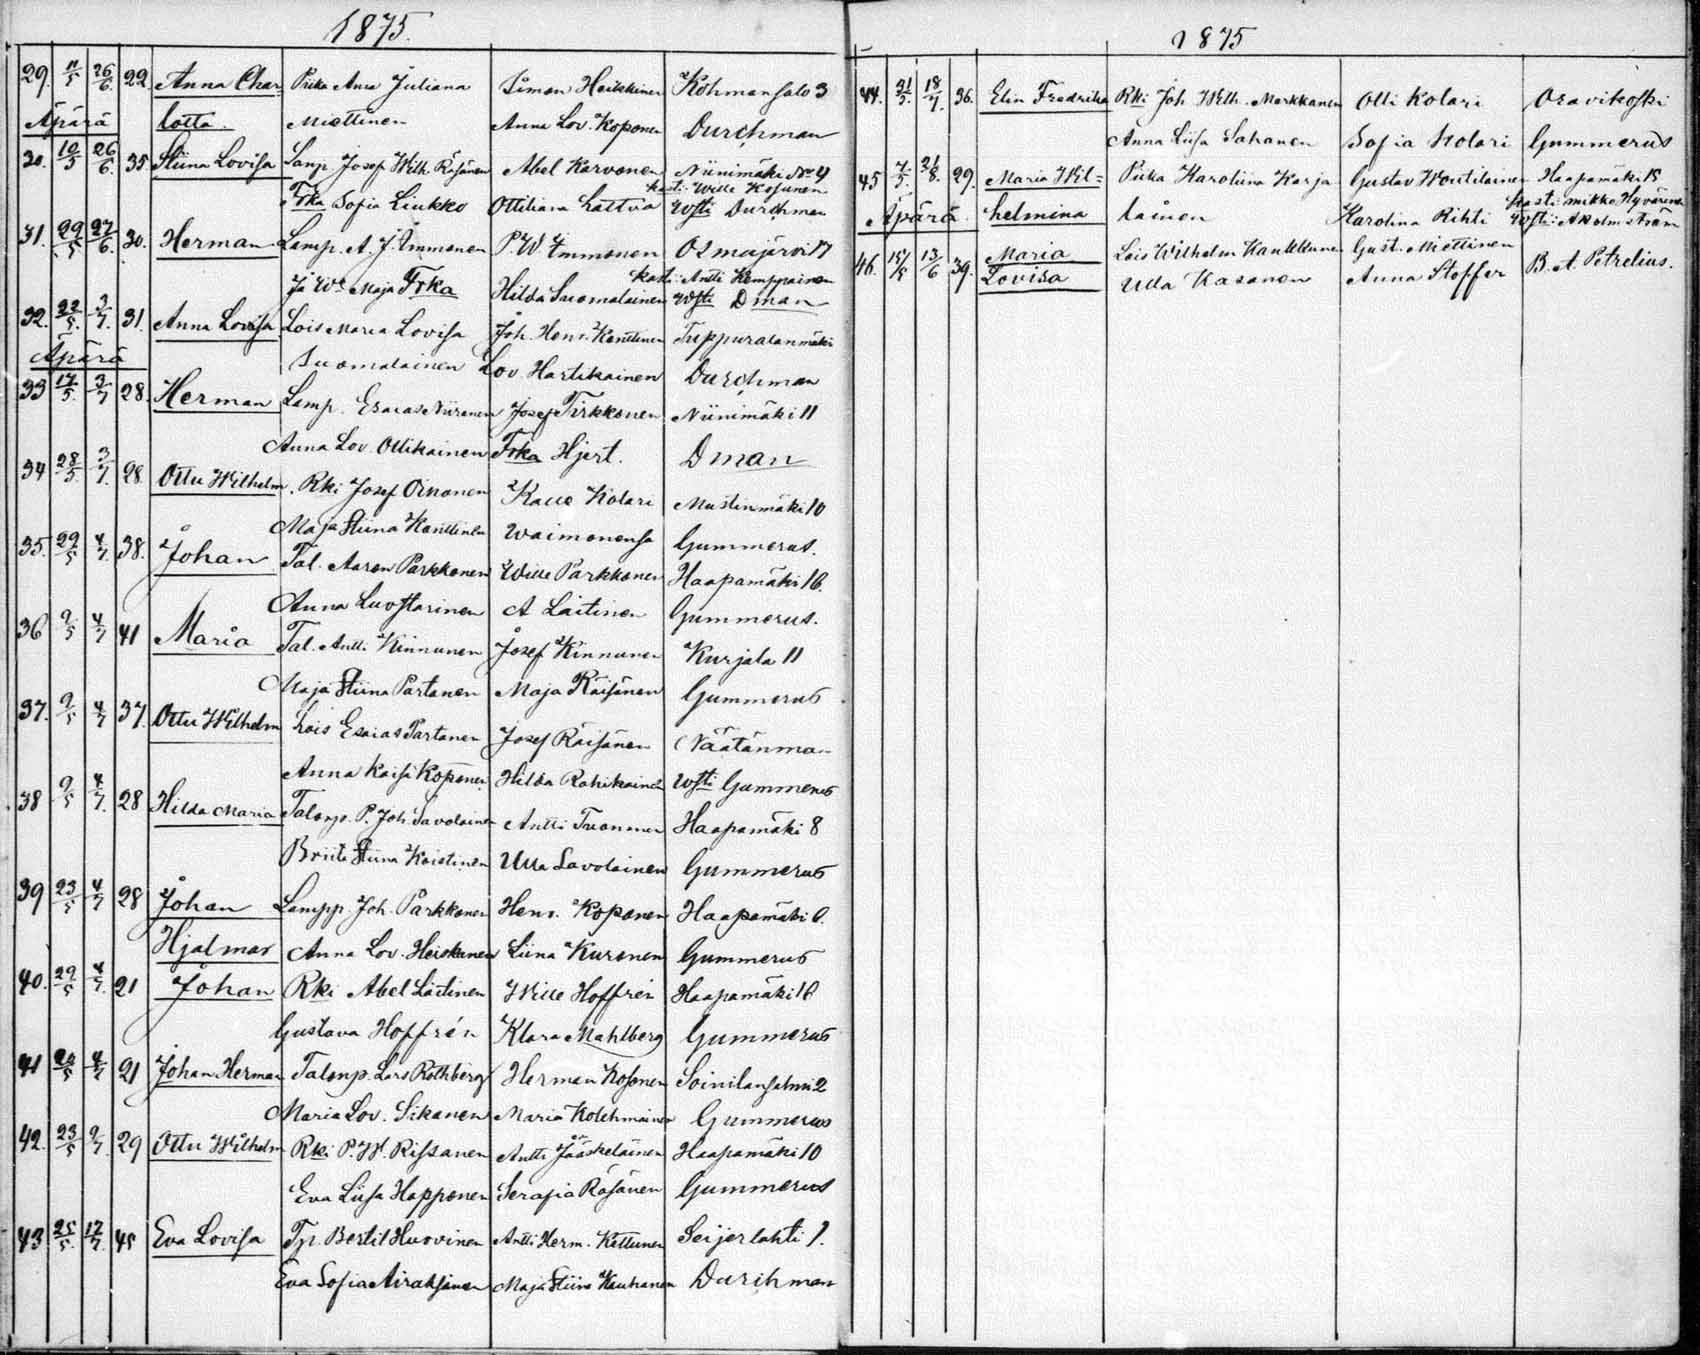 1875.
29. 11/5 26/6. 22. Anna Char= Piika Anna Juliana Simon Heikkinen Kohmansalo 3
Äpärä lotta. Miettinen Anna Lov. Koponen Durchman
30. 10/5 26/6. 35 Stiina Lovisa Lamp. Josef Wilh. Räsänen Abel Karvonen Niinimäki No 4
kasti: Wille Kosunen
Frka Sofia Liukko Ottiliana Lattva Wsti Durchman
31. 29/5 27/6. 30. Herman Lamp. A. J. Immonen P. W. Immonen Osmajärvi 17
kasti: Antti Kemppainen
Maja Frka Hilda Suomalainen Wsti Dman
32. 22/5. 3/7. 31. Anna Lovisa Lois Maria Lovisa Joh. Henr. Kanttinen Tuppuralanmäki
Äpärä Suomalainen Lov. Hartikainen Durchman
33 17/5. 3/7 28. Herman Lamp. Esaias Niiranen Josef Tirkkonen Niinimäki 11
Anna Lov. Ottikainen Frka Hjert. Dman
34 28/5. 3/7. 28. Ottu Wilhelm. Rki Josef Oinonen Kalle Kolari Mustinmäki 10
Maja Stiina Kanttinen Waimonensa Gummerus.
35. 29/5 4/7. 38. Johan Tal. Aaron Parkkonen Wille Parkkonen Haapamäki 16.
Anna Luostarinen A Laitinen Gummerus.
36 9/5 4/7 41 Maria Tal. Antti Kinnunen Josef Kinnunen Kurjala 11
Maja Stiina Partanen Maja Räisänen Gummerus
37. 9/5 4/7 37. Ottu Wilhelm Lois Esaias Partanen Josef Räisänen Näätänmaa
Anna Kaisa Koponen Hilda Rahikainen Wsti Gummerus
38 9/5 4/7. 28 Hilda Maria Talonp. P. Joh. Savolainen Antti Tuonnen Haapamäki 8
Briita Stiina Koistinen Ulla Savolainen Gummerus
39 23/5 4/7 28 Johan Lampp. Joh. Parkkonen Henr. Koponen Haapamäki 6.
Hjalmar Anna Lov. Heiskanen Liina Kuronen Gummerus
40. 29/5 4/7. 21 Johan Rki Abel Laitinen Wille Hoffrén Haapamäki 16
Gustava Hoffrén Klara Mahlberg Gummerus
41 24/5 4/7 21 Johan Herman Talonp. Lars Rothberg Herman Kosonen Soinilansalmi 2
Maria Lov. Sikanen Maria Kolehmainen Gummerus
42. 23/5 9/7. 29 Ottu Wilhelm Rki P. W. Rissanen Antti Jääskeläinen Haapamäki 10
Eva Liisa Happonen Serafia Räsänen Gummerus
43 25/5. 17/7. 45 Eva Lovisa Tp. Bertil Huovinen Antti Herm. Kettunen Seijerlahti 1.
Eva Sofia Airaksinen Maja Stiina Kauhanen Durchman
1875
44. 31/5. 18/7. 36. Elin Fredrika Rki Joh. Wilh. Markkanen Olli Kolari Oravikoski
Anna Liisa Sahanen Sofia Kolari Gummerus
45 7/5. 21/8. 29. Maria Wil= Piika Karoliina Karja Gustav Woutilainen Haapamäki 15
kasti: Mikko Hyvärinen
Äpärä helmina lainen Karolina Rihti Wsti: A Holmström
46. 15/5 13/6 39. Maria Lois Wilhelm Kaukkunen Gust. Miettinen
Lovisa Ulla Kasanen Anna Stoffer B. A. Petrelius.